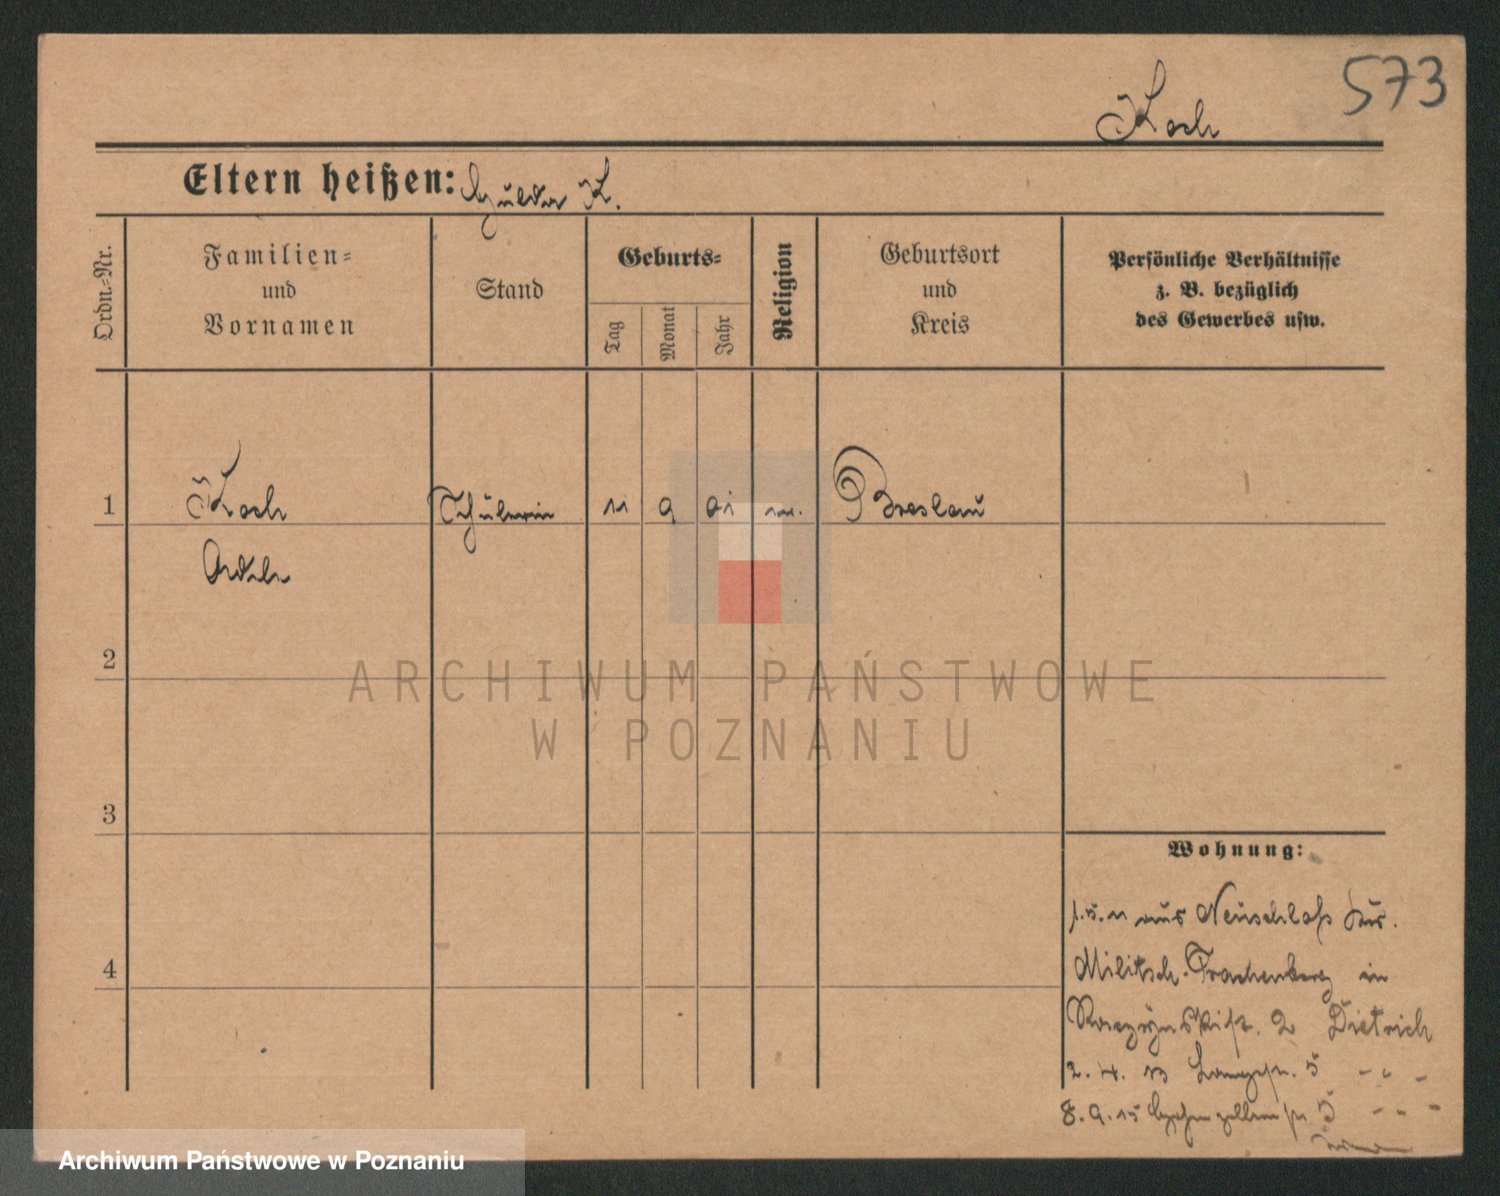 573
Koch
Eltern heißen: K.
Ordn.=Nr.
Familien=
und
Vornamen
Stand
Geburts=
Tag
Monat
Jahr
Religion
Geburtsort
und
Kreis
Persönliche Verhältnisse
z. B. bezüglich
des Gewerbes usw.
1
Koch Schülerin 11 9 01 Breslau
2
3
4
Wohnung:
aus Neuschloß
Militsch-Trachenberg in
Raczynskistr. 2 Dietrich
2. 4. 13 Langestr. 5 - " -
8. 9. 15 5 - " -
ARCHIWUM PAŃSTWOWE
W POZNANIU
Archiwum Państwowe w Poznaniu